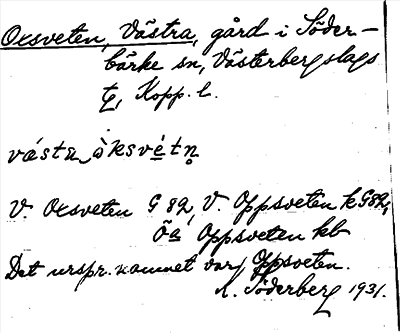 Oxsveten, Västra, gård i Söder-
bärke sn, Västerbergslags
tg, Kopp. l.
västra òksvètn̥
V. Oxsveten G 82, V. Oppsveten k G82,
Öa Oppsveten kb
Det urspr. namnet var Oppsveten.
A. Söderberg 1931.